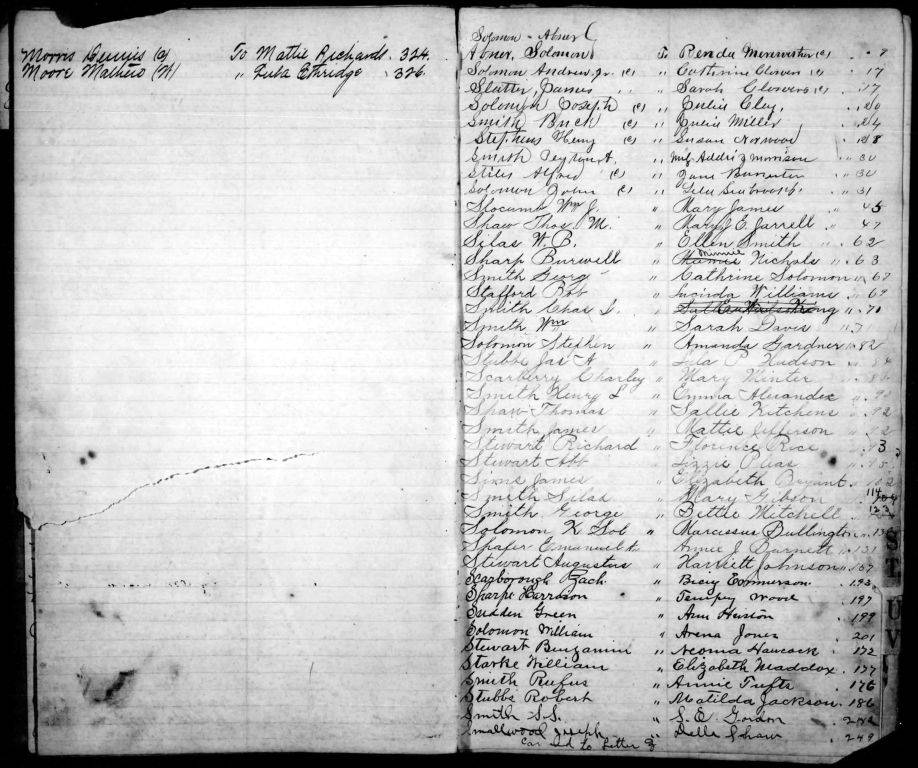 Morris Dennis (c) To Mattie Richards. 324
Moore Mathew (W) " Luba Ethridge. 326
Solomon - Abner (
Abner, Solomon To Renda Minnwister (c) . 7
Solomon Andrew, Jr. (c) " Catherine Clowers (c) . 17
Slatter, James " Sarah Clowers (c) . 17
Solomon Joseph (c) " Julia Clay,
Smith Buck (c) " Julia Miller
Stephens Henry (c) " Susan Norwood
Smith Peyton A. " Addri J Morrison
Stiles Alfred (c) " Jane
Solomon John (c) " Seabrooks . 31
Slocumb Wm J. " Mary James 45
Shaw Thos M. " Mary E. Jarrell . 47
Silas W. B. " Ellen Smith " 62
Sharp Burwell " Minnie Nichols " 63
Smith Georg " Cathrine Solomon " 67
Stafford Bob " Lucinda Williams . 69
Smith Chas " 70
Smith Wm " Sarah Davis " 71
Solomon Stephen " Amanda Gardner " 82
Stubbs Jas A " Lila P. Hudson " 84
Scarberry Charley " Mary Minter "
Smith Henry L " Emma Alexander "
Shaw Thomas " Sallie Kitchens " 92
Smith James " Mattie Jefferson " 92
Stewart Richard " Florence Rice 93
Stewart Abb " Lizzie Pleas " 95
Sims James " Elizabeth Bryant . 102
Smith Silas " Mary Gibson 114
Smith George " Bettie Mitchell . 123
Solomon K Sol " Marcissus Bullington " 130
Shafer Emanuel " Annie J Barnett " 131
Stewart Augustus " Harriett Johnson " 167
Scarborough Zach " 193
Sharpe Harrison " Tempey Wood . 197
Sudden Green " Ann Huston . 199
Solomon William " Arena Jones 201
Stewart Benjamin " Neoma Hancock . 172
Starke William " Elizabeth Maddox . 177
Smith Rufus " Annie Tufts . 176
Stubbs Robert " Matilda Jackson . 186
Smith S.S. " S. E Gordon
Smallwood Joseph " Della Shaw . 249
Car ied to Letter
S
T
U
V